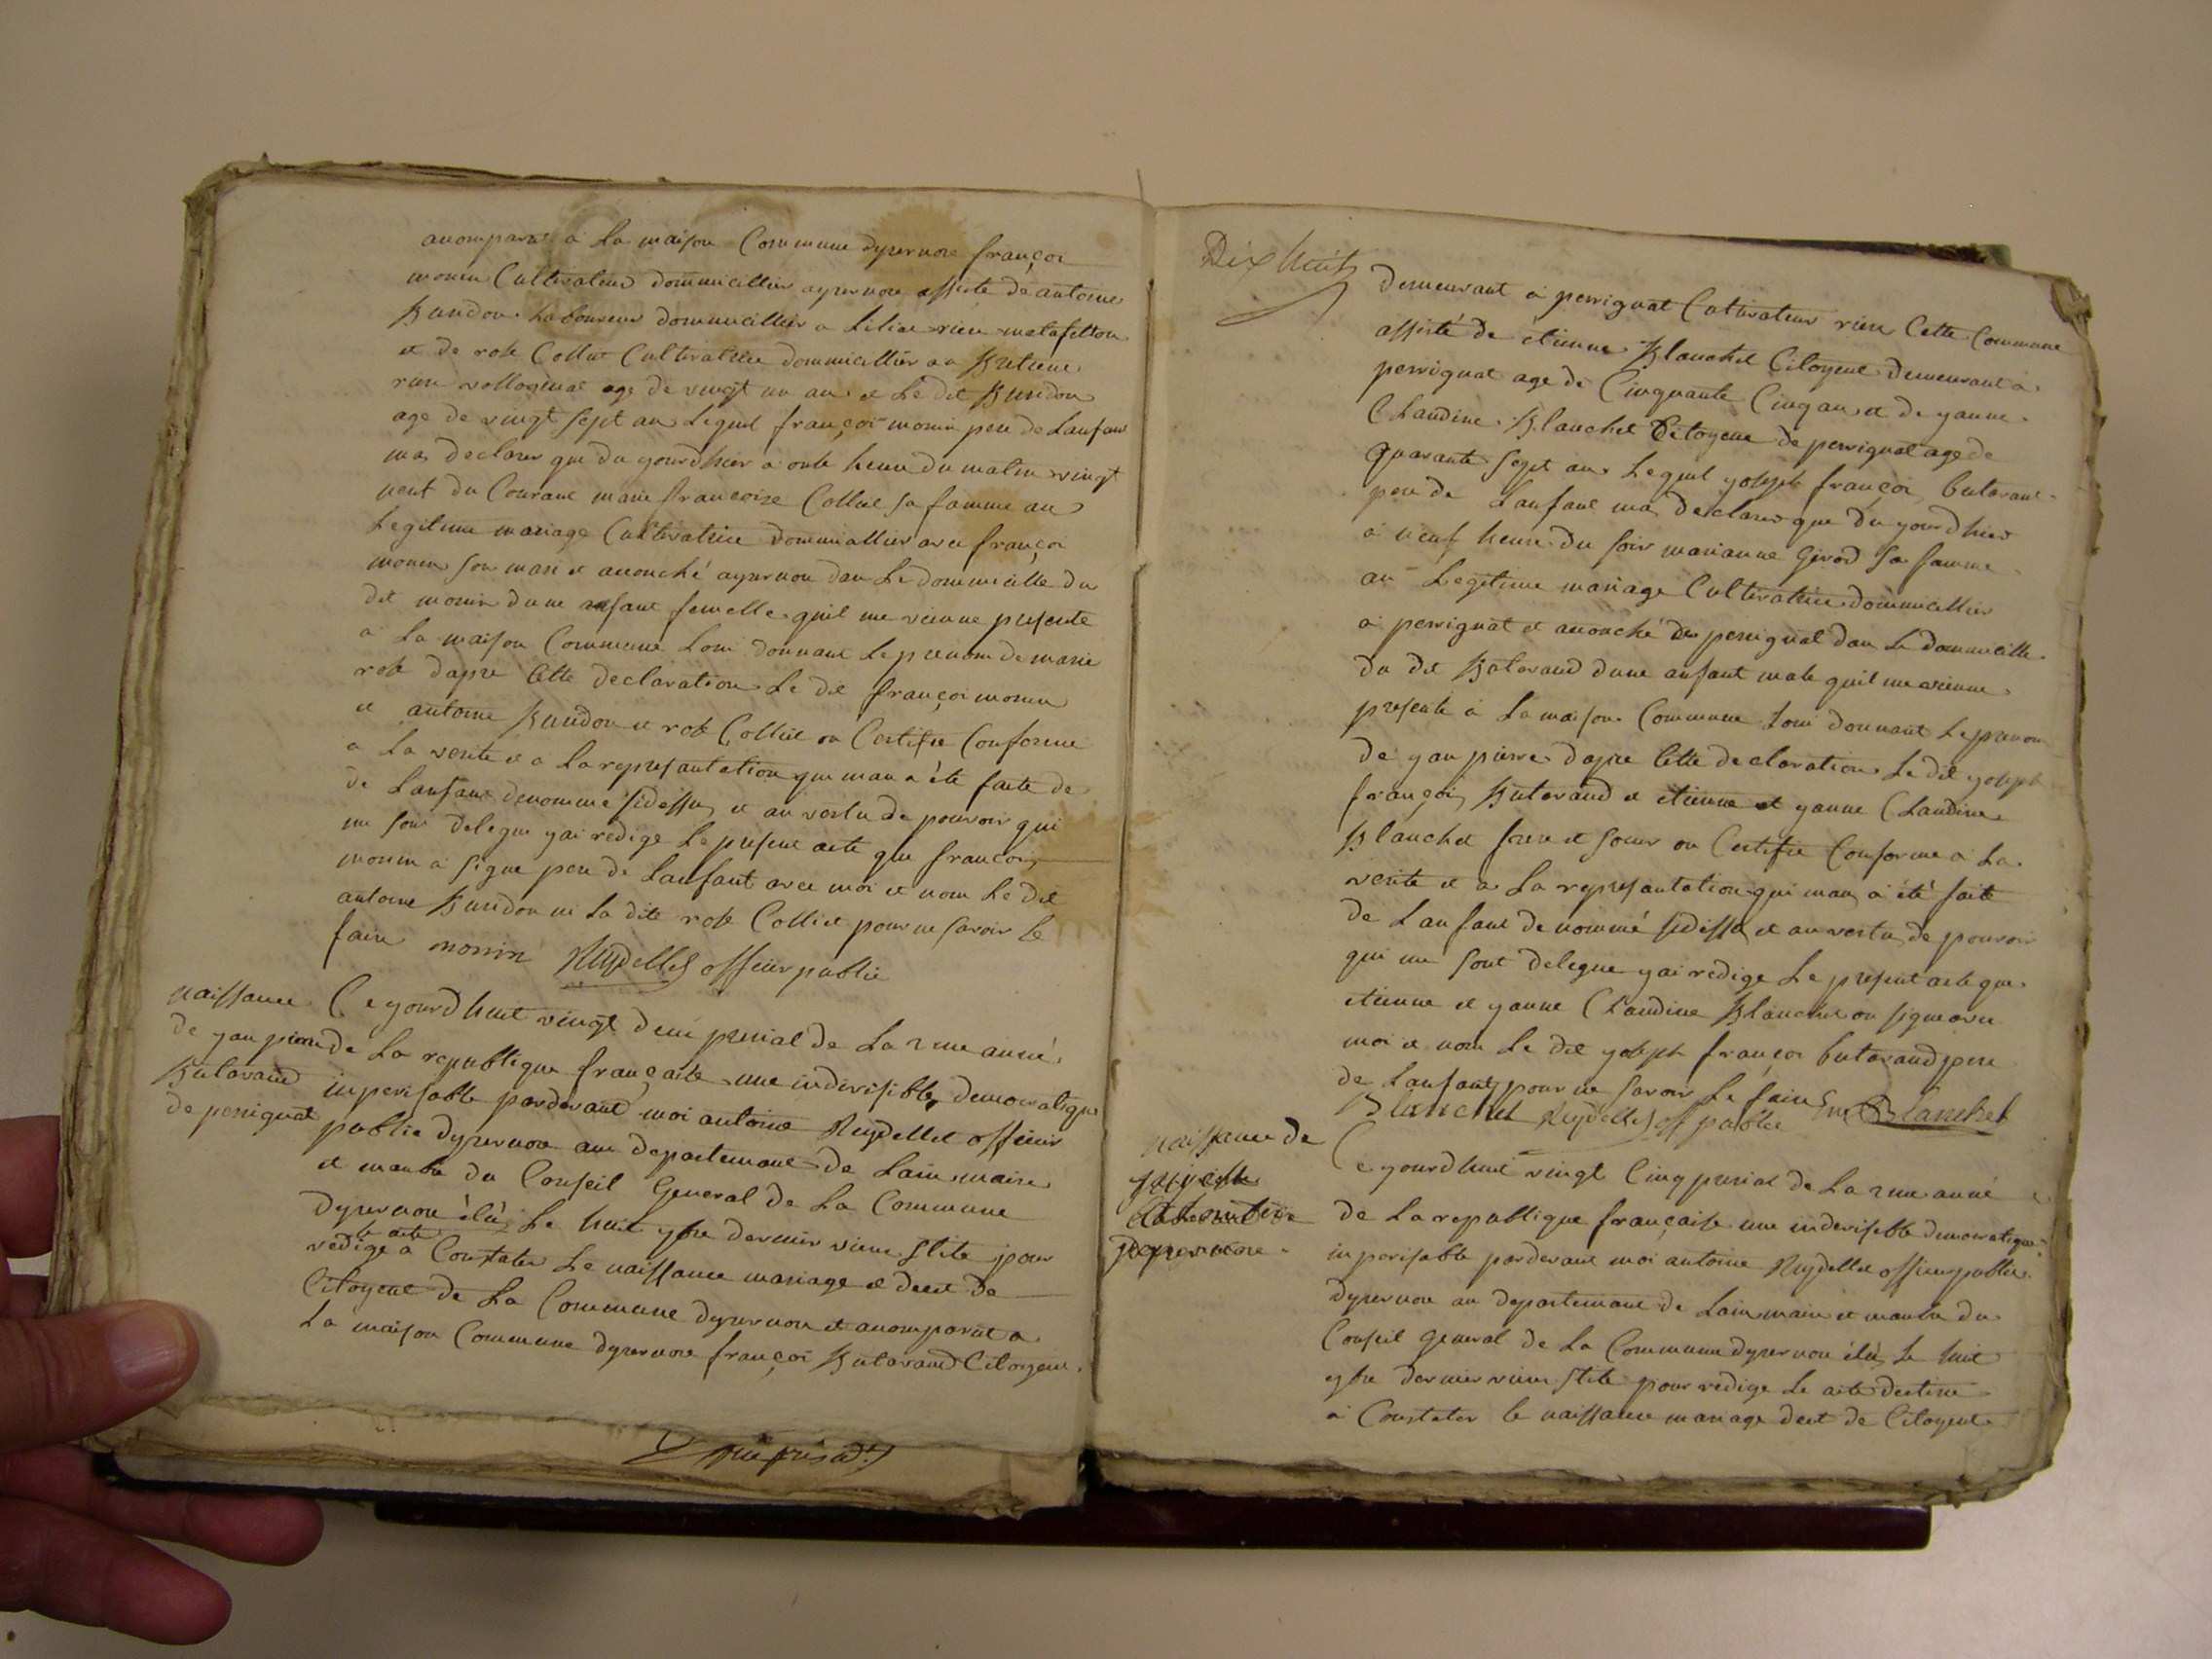 anomparut a La maison Commune dysernore françoi
monin Cultivateur dommicillier aysernore assisté de antoine
Bundon Laboureur dommicillier a
et de rose Colliet Cultivatrice dommicillier
rien age de vingt un an et Le dit Bundon
age de vingt sept an Lequel françoi monin pere de Lanfant
ma declarer que du yourdhier a onse heure du matin vingt
neuf du Courant marie francoise Colliet sa famme an
Legitime mariage Cultivatrice dommicillier avec françoi
monin son mari et anouché aysernore dan Le dommicille du
dit monin dune anfant femelle quil me vienne presente
a La maison Commune Loui donnant Le prenom de marie
rose dapre Cette declaration Le dit françoi monin
et antoine Bundon et rose Colliet on Certifie Conforme
a La verite et a La represantation qui man a été faite de
de Lanfant denommé sidessu et an vertu de pouvoir qui
me son delegue yai redige Le present acte que françoi
monin a signe pere de Lanfant avec moi et nom Le dit
antoine Bundon ni La dite rose Colliet pour ne savoir Le
faire monin Reydellet officier public
naissance
de yan pierre
Butavand
de perrignat
Ce yourdhuit vingt deux prerial de La 2me anné
de La republique françaite une indivisible democratique
inperisable pardevant moi antoine Reydellet officier
public dysernore au departemant de Lain maire
et manbre du Conseil General de La Commune
dysernore élú Le huit ybre dernier vieux stile pour
redige Le acte a Constater Le naissance mariage et decet de
Citoyent de La Commune dysernore et anomparut a
La maison Commune dysernore françoi Butavand Citoyent
Dix huit
demeurant a perrignat Cultivateur rien Cette Commune
assisté de étienne Blanchet Citoyent demeurant a
perrignat age de Cinquante Cinq an et de yanne
Claudine Blanchet Citoyene de perrignat age de
quarante sept an Lequel yoseph françoi butavant
pere de Lanfant ma declarer que du yourdhier
a neuf heure du soir marianne Girod sa famme
an Legitime mariage Cultivatrice dommicillier
a perrignat et anouché de perrignat dan Le dommicille
du dit Butavand dune anfant male quil me vienne
presente a La maison Commune Loui donnant Le prenom
de yan pierre dapre Cette declaration Le dit yoseph
françoi Butavand et étienne et yanne Claudine
Blanchet frere et soeur on Certifie Conforme a La
verite et a La represantation qui man a été faite
de Lanfant denommé sidessu et an vertu de pouvoir
qui me sont delegue yai redige Le present acte que
étienne et yanne Claudine Blanchet on signe avec
moi et nom Le dit yoseph françoi butavand pere
de Lanfant pour ne savoir Le faire
Blanchet Reydellet off public Blanchet
naissance de
Ce yourdhuit vingt Cinq prerial de La 2me anné
de La republique française une indivisible democratique
inperisable pardevant moi antoine Reydellet officier public
dysernore au departemant de Lain maire et manbre du
Conseil General de La Commune dysernore élú Le huit
ybre dernier vieux stile pour redige Le acte destine
a Constater Le naissance mariage decet de Citoyent